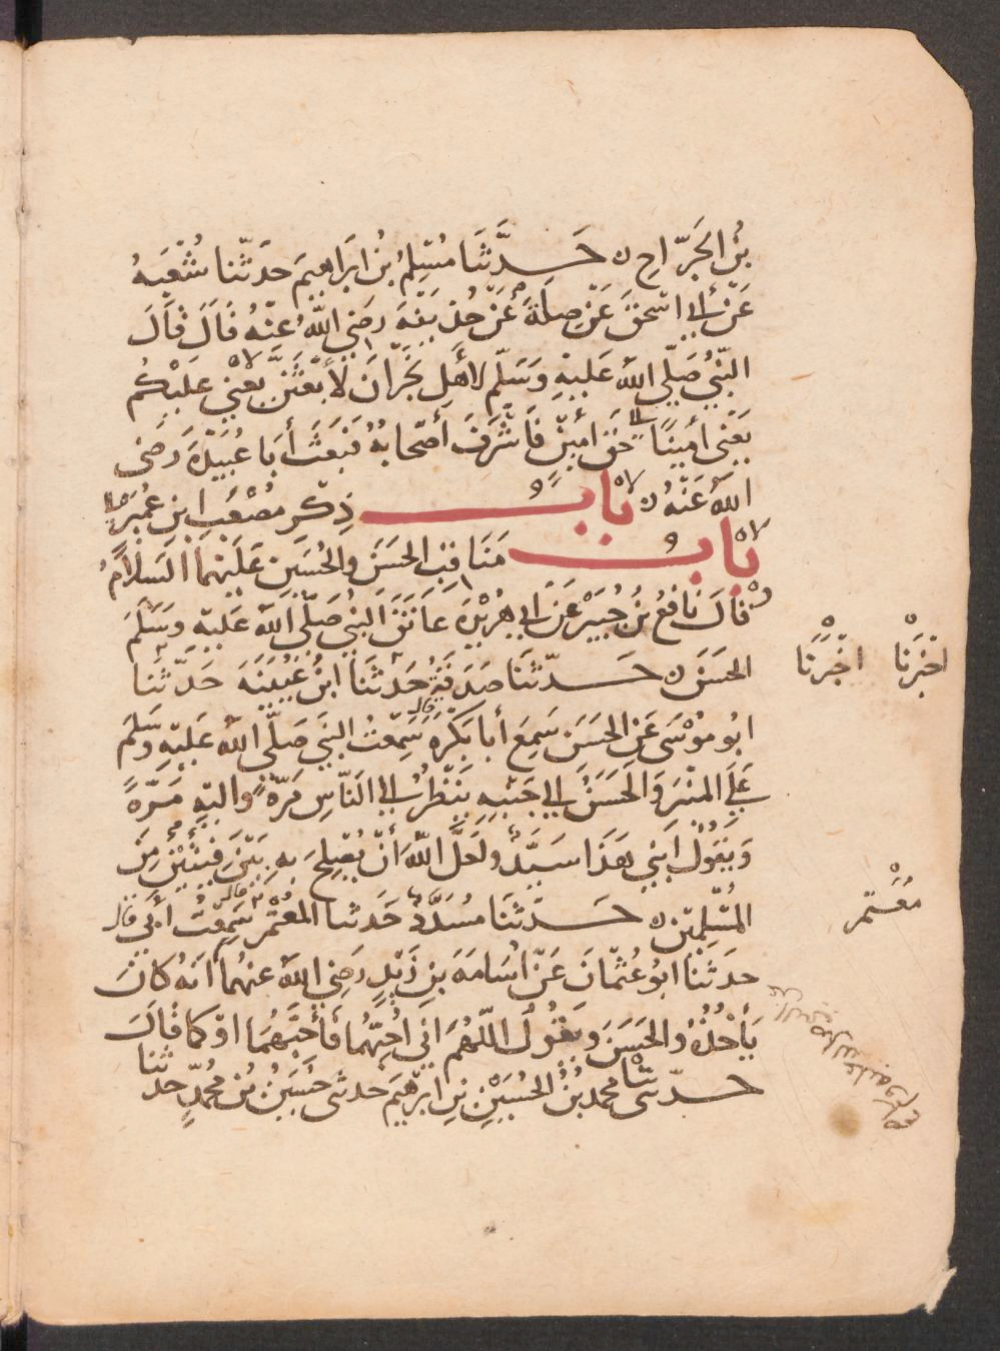 بْنُ الجَرَّاحِ ن حَـــدَّثَنَا مُسْلِمُ بْنُ ابْرَاهِيمَ حَدَّثَنا شُعْبَةُ
عَنْ أَبِي اسْحٰقَ عَنْ صِلَةَ عَنْ حُذَيْفَةَ رضِيَ اللهُ عَنْهُ قَالَ قَالَ
النَّبِيُّ صَلَّى اللهُ عَلَيْهِ وَسَلَّمَ لأَهْلِ نَجْرَانَ لَأَبْعَثَنَّ يَعْنِي عَلَيْكُم
يَعْنِي أَمِينًا حَقَّ أَمِينٍ فَأَشْرَفَ أَصْحَابُهُ فَبَعَثَ أَبَا عُبَيْدَةَ رضِيَ
اللهُ عَنْهُ ن بَابُ ذِكْرِ مُصْعَبِ ابنِ عُمَيْرٍ
بَابُ مَنَاقِبِ الحَسَنِ والحُسَيْنِ عَلَيْهِمَا السَّلَامُ
قَالَ نَافِعُ بْنُ جُبَيْرٍ عَنْ ابِي هُرَيْرَةَ عَانَقَ النَّبِيُّ صَلَّى اللهُ عَلَيْهِ وَسَلَّمَ
الحَسَنَ ن حَـــدَّثَنَا صَدَقَةُ حَدَّثَنَا ابْنُ عُيَيْنَةَ حَدَّثَنَا
اخْبَرَنَا اخْبَرَنَا
ابُو مُوْسَى عَنِ الحَسَنِ سَمِعَ أَبَا بَكْرَةَ قال سَمِعْتُ النَّبِيَّ صَلَّى اللهُ عَلَيْهِ وسَلَّمَ
عَلَى المِنْبَرِ وَالحَسَنُ الى جَنْبِهِ يَنْظُرُ الى النَّاسِ مَرَّةً والَيْهِ مَرَّةً
وَيَقُولُ ابْنِي هٰذَا سَيِّدٌ ولَعَلَّ اللهَ أَنْ يُصْلِحَ بِهِ بَيْنَ فِئَتَيْنِ مِنَ
المُسْلِمِيْنَ ن حَـــدَّثَنَا مُسَدَّدٌ حَدَّثنا المُعْتَمِرُ قال سَمِعْتُ أَبِي قال
مُعْتَمِر
حدَّثَنَا ابُو عُثْمَانَ عَنْ اُسَامَةَ بْنِ زَيْدٍ رضِيَ اللهُ عنهُمَا انَّهُ كَانَ
يَأْخُذُهُ والحَسَنَ ويَقُولُ اللّهُمَّ انِّي اُحِبُّهُمَا فَأَحِبَّهُمَا اوْ كَمَا قَالَ
حـــدّثني محمدُ بْنُ الحُسَيْنِ بْنِ ابْرٰهِيمَ حدثني حُسَيْنُ بْنُ مُحَمَّدٍ حدثنا